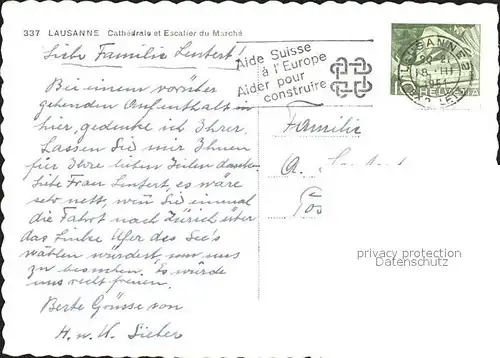 337 LAUSANNE Cathédrale et Escalier du Marché
Liebe Familie Lintert!
Bei einem vorüber
gehenden Aufenthalt in
hier, gedenke ich Ihrer.
Lassen Sie mir Ihnen
für Ihre lieben Zeilen danken
Liebe Frau Lintert, es wäre
sehr nett, wenn Sie einmal
die Fahrt nach Zürich über
das linke Ufer des See's
wählen würdest, um uns
zu besuchen. Es würde
uns recht freuen.
Beste Grüsse von
H. u. W. Sieber
Aide Suisse
à l'Europe
Aider pour
construire
LAUSANNE
18. III
HELVETIA
Familie
privacy protection
Datenschutz